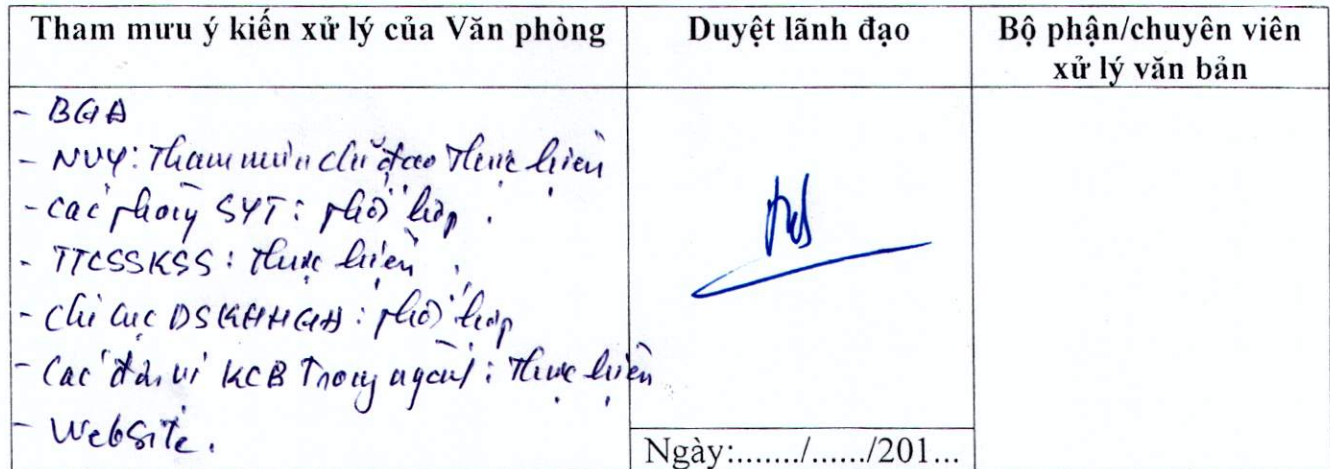 Tham mưu ý kiến xử lý của Văn phòng
Duyệt lãnh đạo
Bộ phận/chuyên viên
xử lý văn bản
- BGĐ
- NVY: Tham mưu chỉ đạo thực hiện
- Các phòng SYT: phối hợp.
- TTCSSKSS: thực hiện.
- Chi cục DSKHHGĐ: phối hợp
- Các đơn vị KCB Trong ngành: Thực hiện
- Website.
Ngày:......./....../201...